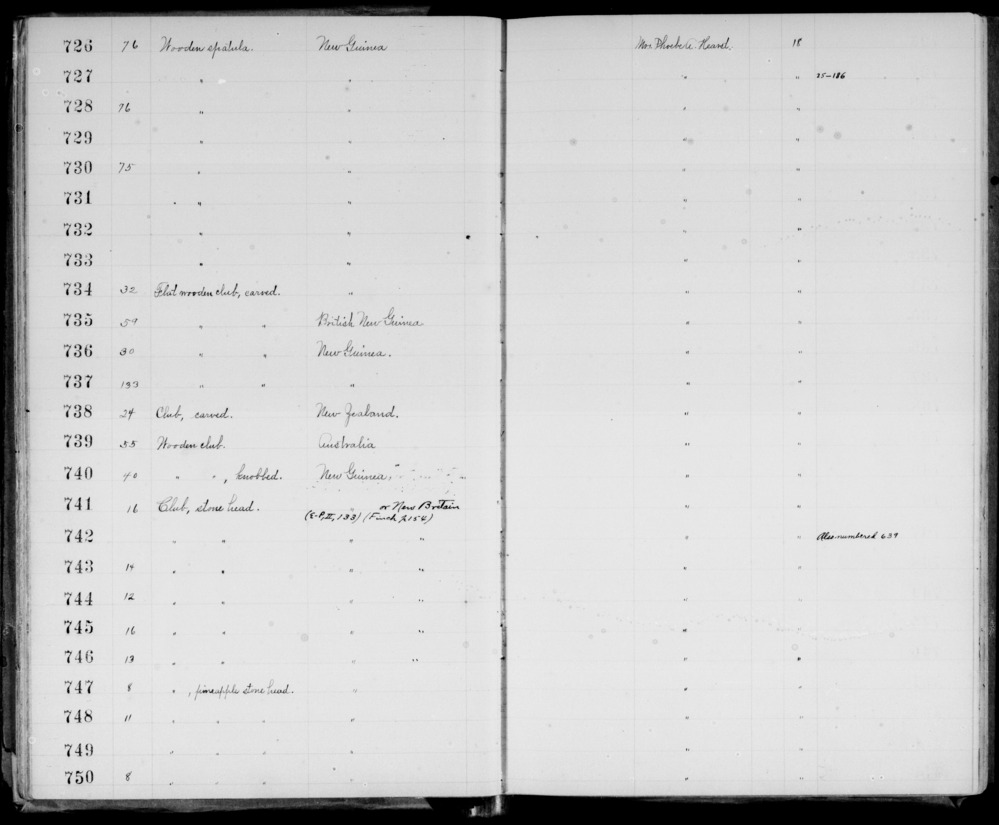 726 76 Wooden spatula. New Guinea Mrs. Phoebe A. Hearst. 18
727 " " " " 25-186
728 76 " " " "
729 " " " "
730 75 " " " "
731 " " " " "
732 " " " "
733 " " " "
734 32 Flat wooden club, carved. " " "
735 59 " " British New Guinea " "
736 30 " " New Guinea. " "
737 133 " " " " "
738 24 Club, carved. New Zealand. " "
739 55 Wooden club. Australia " "
740 40 " " , knobbed. New Guinea. " "
741 16 Club, stone head. " or New Britain " "
(E-P, II, 133) (Finch, 2154)
742 " " " " " " Also numbered 639
743 14 " " " " " "
744 12 " " " " " "
745 16 " " " " " "
746 13 " " " " " "
747 8 " , pineapple stone head. " " "
748 11 " " " " " "
749 " " " " " "
750 8 " " " " " "